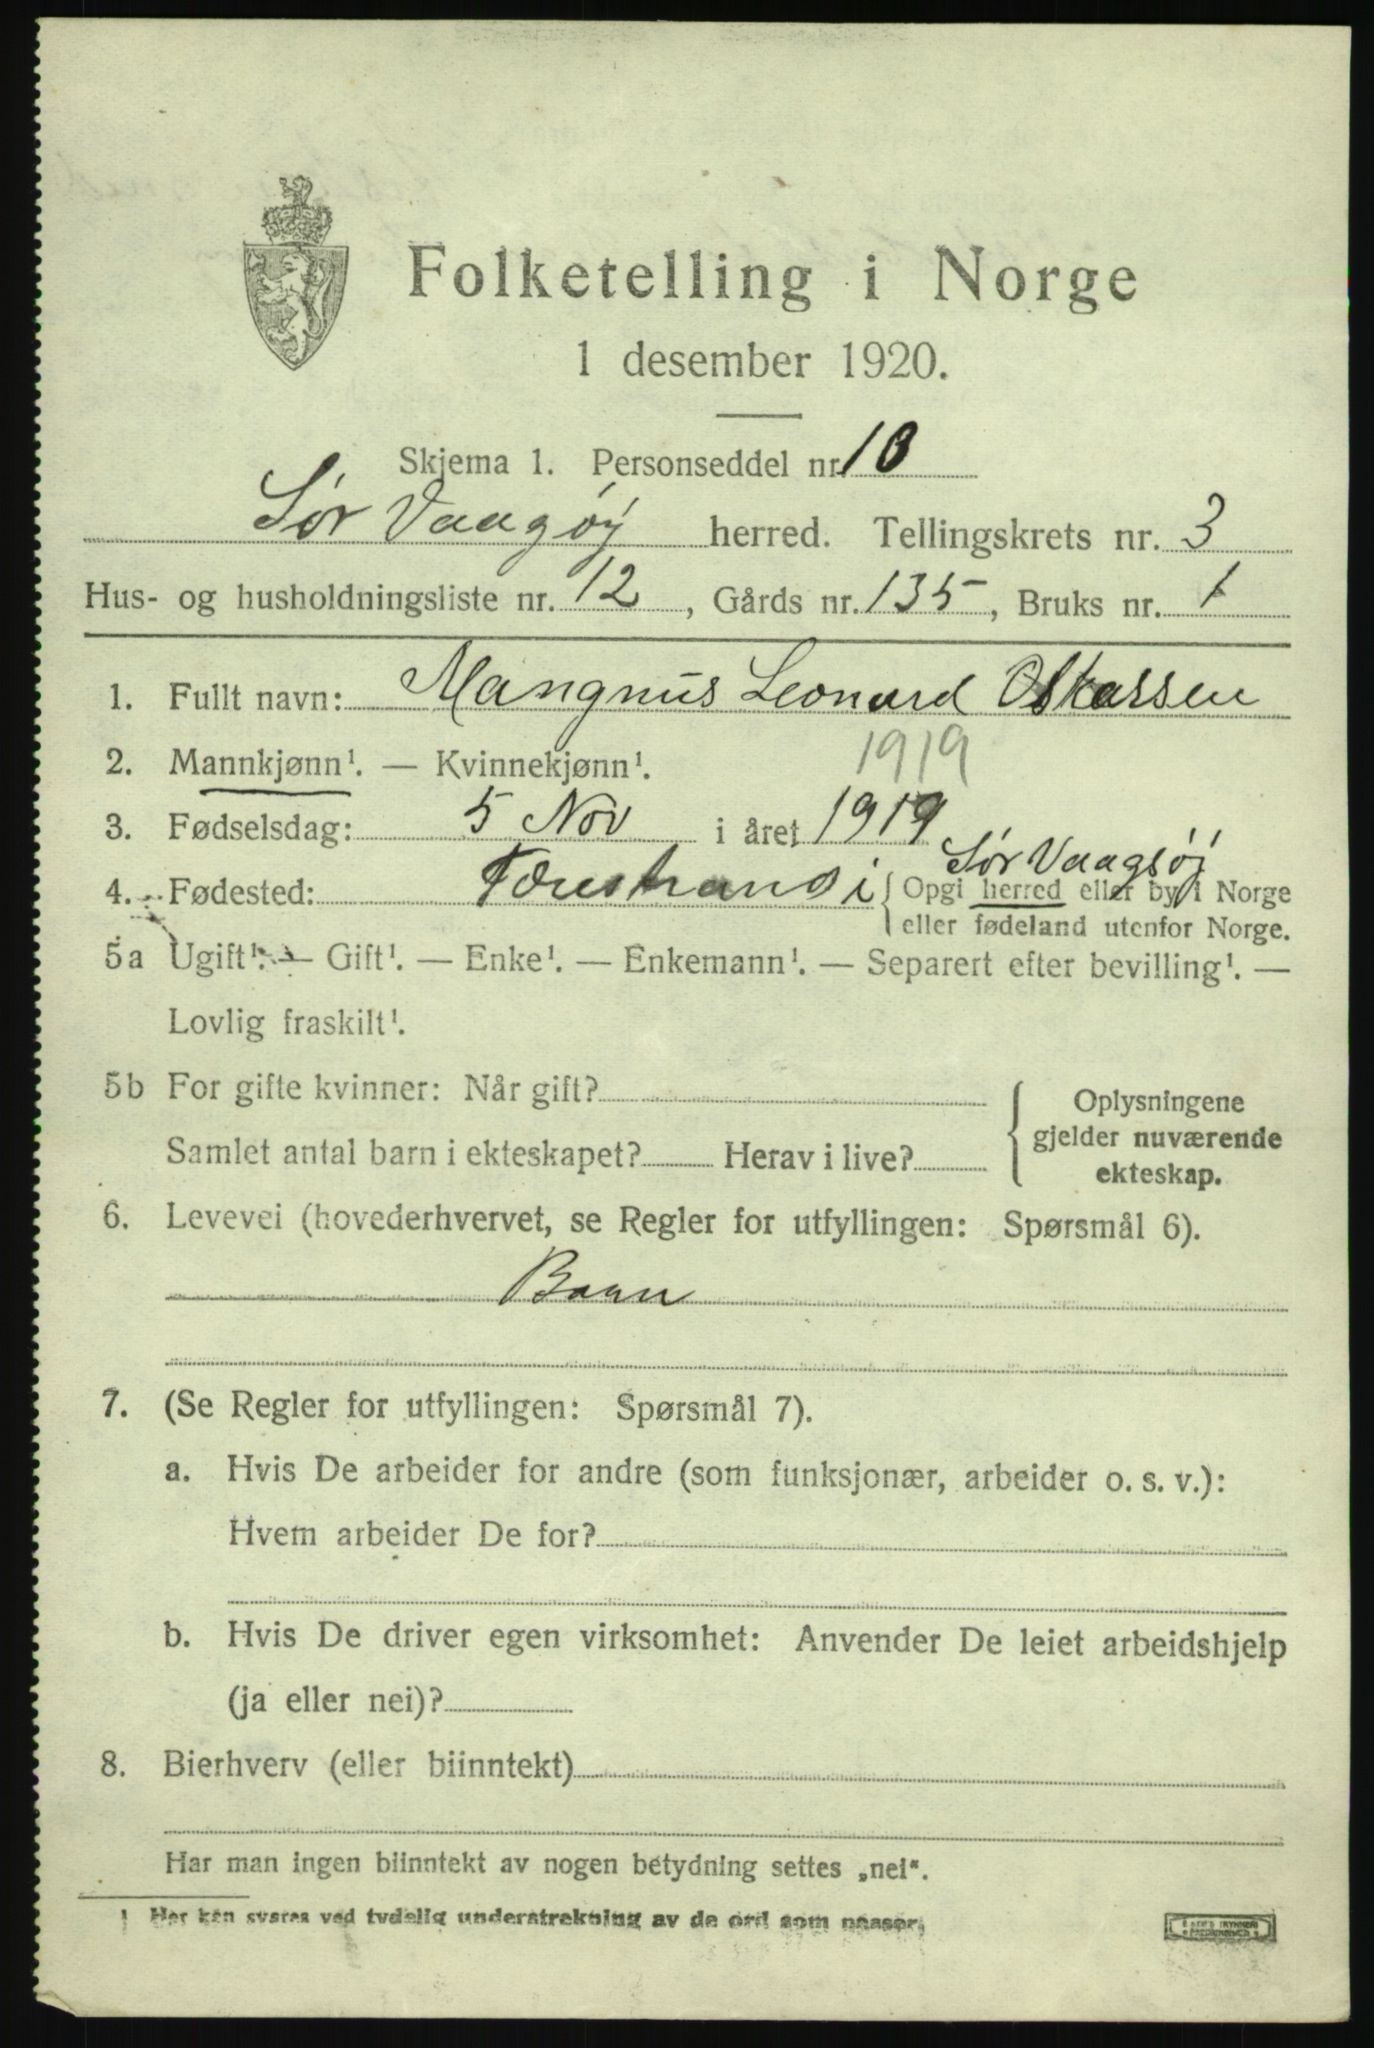 Folketelling i Norge
1 desember 1920.
Skjema 1. Personseddel nr. 10
Sør Vaagøy herred. Tellingskrets nr. 3
Hus- og husholdningsliste nr. 12, Gårds nr. 135, Bruks nr. 1
1. Fullt navn: Mangnus Leonard Oskarsen
1919
2. Mannkjønn¹. — Kvinnekjønn¹.
3. Fødselsdag: 5 Nov i året 1919
Sør Vaagsøj
4. Fødested: i { Opgi herred eller by i Norge
eller fødeland utenfor Norge.
5a Ugift¹. — Gift¹. — Enke¹. — Enkemann¹. — Separert efter bevilling¹. —
Lovlig fraskilt¹.
5b For gifte kvinner: Når gift?
Samlet antal barn i ekteskapet? Herav i live?
{ Oplysningene
gjelder nuværende
ekteskap.
6. Levevei (hovederhvervet, se Regler for utfyllingen: Spørsmål 6).
Barn
7. (Se Regler for utfyllingen: Spørsmål 7).
a. Hvis De arbeider for andre (som funksjonær, arbeider o. s. v.):
Hvem arbeider De for?
b. Hvis De driver egen virksomhet: Anvender De leiet arbeidshjelp
(ja eller nei)?
8. Bierhverv (eller biinntekt)
Har man ingen biinntekt av nogen betydning settes „nei".
1 Her kan svares ved tydelig understrekning av de ord som passer.